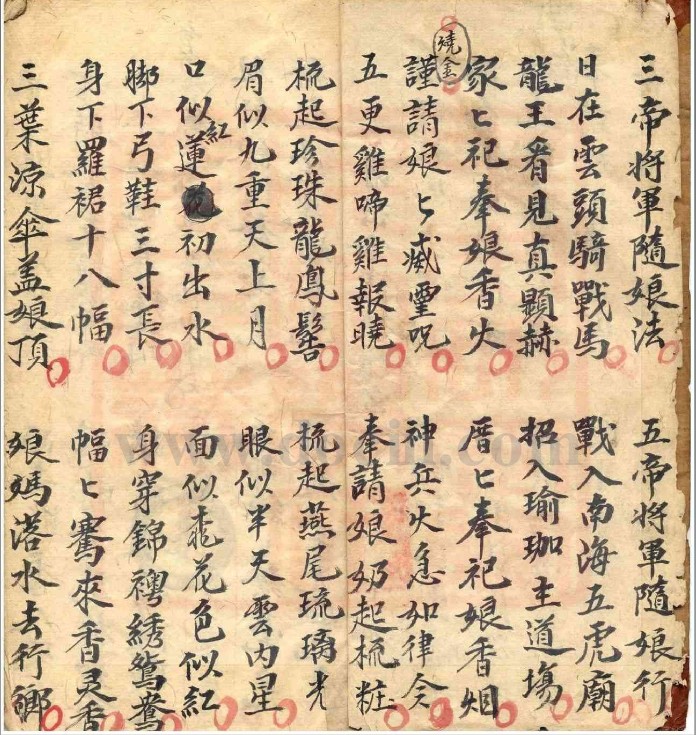 三帝将軍隨娘法 五帝将軍隨娘行
日在雲頭騎戰馬 戰入南海五虎廟
龍王看見真顯赫 招入瑜珈主道場
家匕祀奉娘香火 厝匕奉祀娘香烟
燒金
謹請娘匕威靈咒 神兵火急如律令
五更雞啼雞報曉 奉請娘奶起梳粧
梳起珍珠龍鳳髻 梳起燕尾琉璃光
眉似九重天上月 眼似半天雲内星
口似蓮紅初出水 面似桃花色似紅
脚下弓鞋三寸長 身穿錦襖綉鴛鴦
身下羅裙十八幅 幅匕騫來香灵香
三葉凉傘盖娘頂 娘媽落水去行鄉